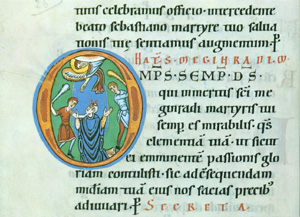 tuni celebramus officio intercedente
beato sebastiano martyre tuo salua
tionis nre sentiamus augmentum. P
S MEGINRA M
OMPS SEMP DS
qui in meritis sci me
ginradi martyris tui
semp es mirabilis. qs
clementiam tuam. ut sic
ei eminentem passionis glori
am contulisti. sic ad csequendam
miediam tuam eius nos facias precib
adiuvari. P SECRETA